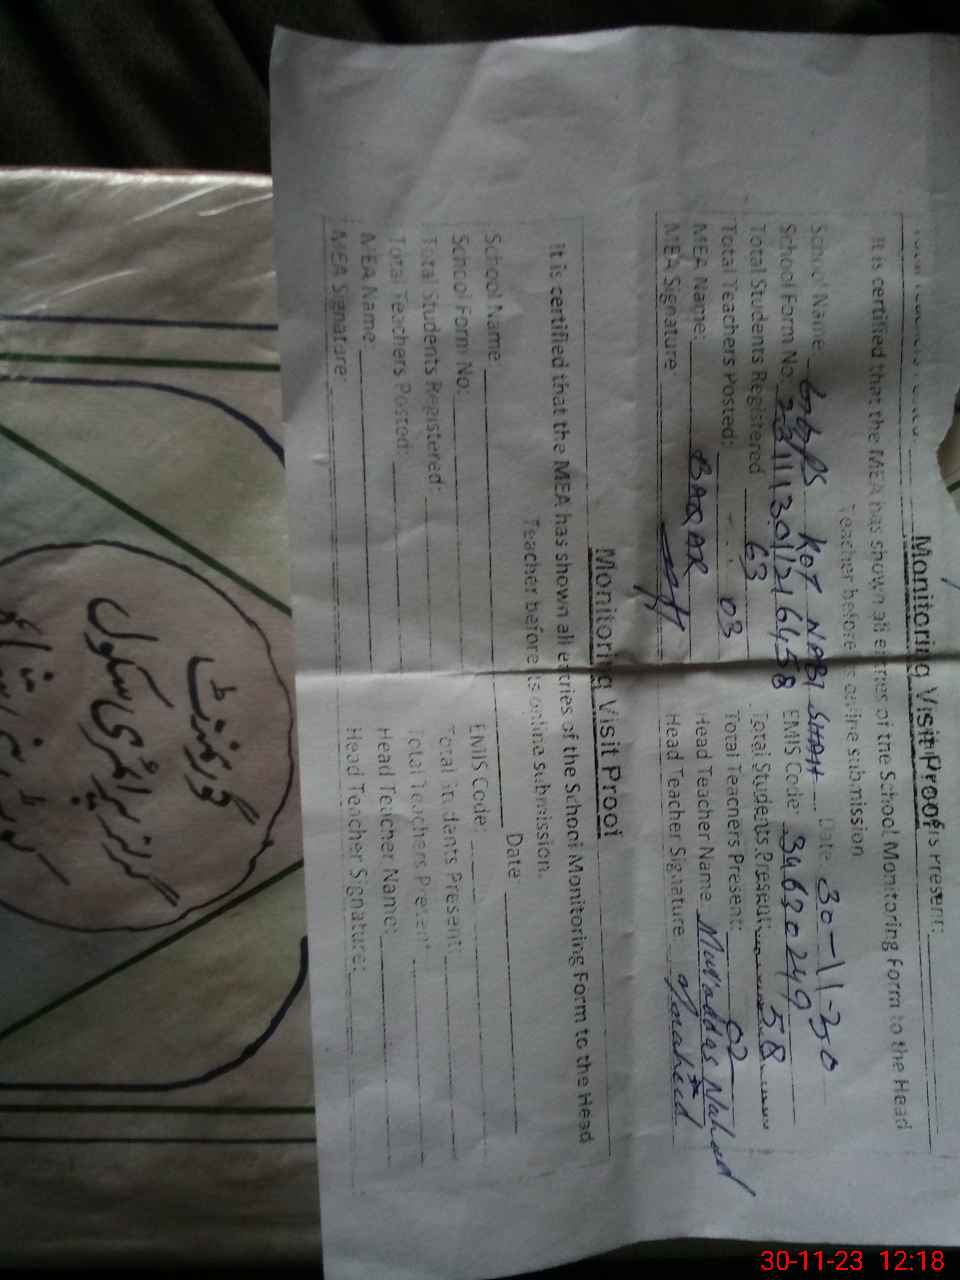 Monitoring Visit Proof
It is certified that the MEA has shown all entries of the School Monitoring Form to the Head
Teacher before its online submission
School Name: GGPS KOT NABI SHAH Date 30-11-
School Form No: EMIS Code: 34630249
Total Students Registered 63 Total Students Present: 58
Total Teachers Posted: 03 Total Teachers Present: 02
MEA Name: BABAR Head Teacher Name Nahed
MEA Signature: Head Teacher Signature
Monitoring Visit Proof
It is certified that the MEA has shown all entries of the School Monitoring Form to the Head
Teacher before its online submission.
School Name: Date:
School Form No: EMIS Code:
Total Students Registered: Total Students Present:
Total Teachers Posted: Total Teachers Present:
MEA Name: Head Teacher Name:
MEA Signature: Head Teacher Signature:
گورنمنٹ
گرلز پرائمری سکول
30-11-23 12:18